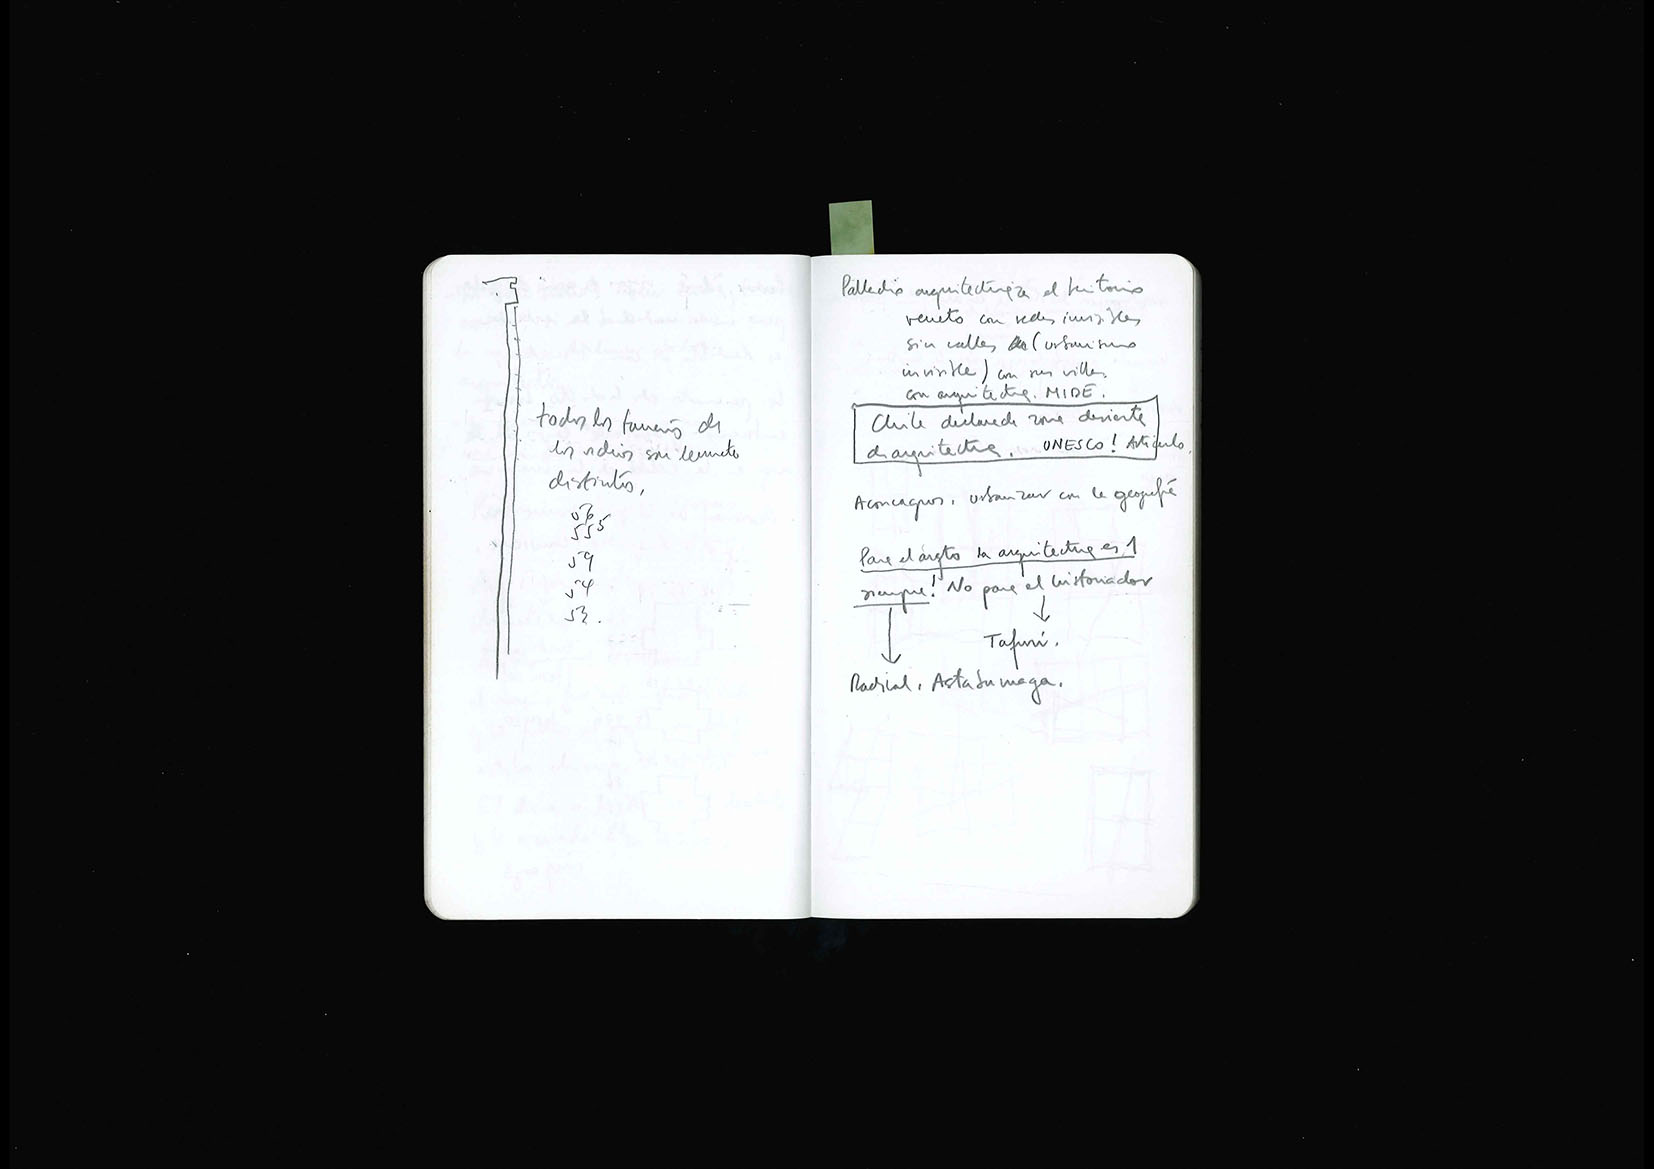 todos los tamaños de
los
distintos,
555
59
54
53.
Palladio arquitecturiza el territorio
veneto con redes invisibles
sin calles (urbanismo
invisible) con sus villas.
con arquitectura. MIDE.
Chile declarado zona desierta
de arquitectura. UNESCO! Artículo.
Aconcagua. urbanizar con la geografía
Para el arqto la arquitectura es 1
siempre! No para el historiador
Tafuri.
Radical. Astaburuaga.